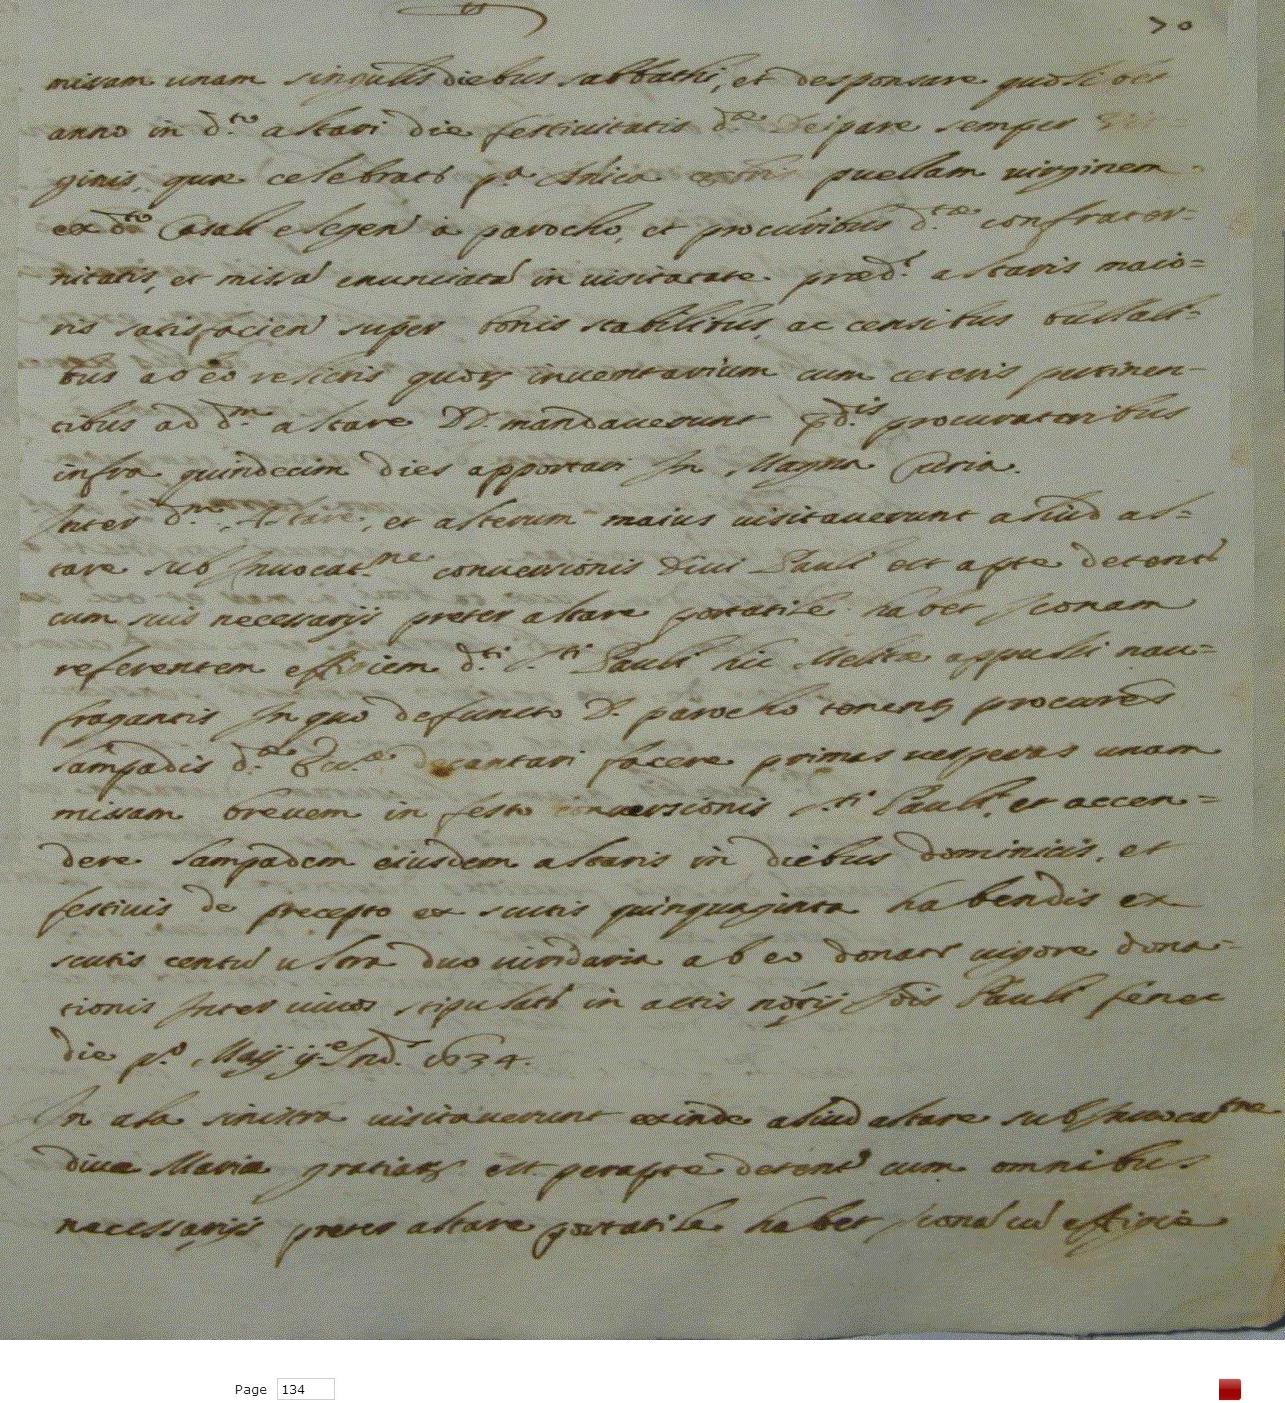 70
missam unam singulis diebus sabbathi, et desponsare quolibet
anno in d.to altari die festiuitatis d.æ Deipare semper Vir-
ginis, que celebrat p.a puellam virginem
ex d.to Casali eligen à parocho, et procuribus d.tæ confrater-
nitatis, et missâ enunciatâ in uisitatate præd.i altaris maio=
ris satisfacien super bonis stabilibus, ac censibus bullali=
bus ab eo relictis quorum inuentarium cum ceteris pertinen-
tibus ad d.m altare DD. mandauerunt p̄d.is procuratoribus
infra quindecim dies apportari In Magna Curia.
Inter d.m Altare, et alterum maius uisitauerunt aliud al=
tare sub Inuocat.ne conuersionis Diui Pauli est apte detent
cum suis necessarijs preter altare portatile habet Iconam
referentem effigiem d.ti S.ti Pauli hic Melitæ appulsi nau=
fragantis In quo defuncto D. parocho tenent procures
lampadis d.æ decantari facere primas uesperas unam
missam breuem in festo conuersionis S.ti Pauli, et accen=
dere lampadem eiusdem altaris in diebus dominicis, et
festiuis de precepto ex scutis quinquaginta habendis ex
scutis centû ultra duo uiridaria ab eo donat uigore dona=
tionis Inter uiuos stipulat in actis notrij Jois Pauli fenec
die p.o Maij ij.e Ind.s 1634.
In ala sinistra uisitauerunt exinde aliud altare sub Inuoca.tne
diuæ Mariæ gratiarum est perapte detent cum omnibus
necessarijs preter altare portatile habet Iconâ cû effigie
Page 134